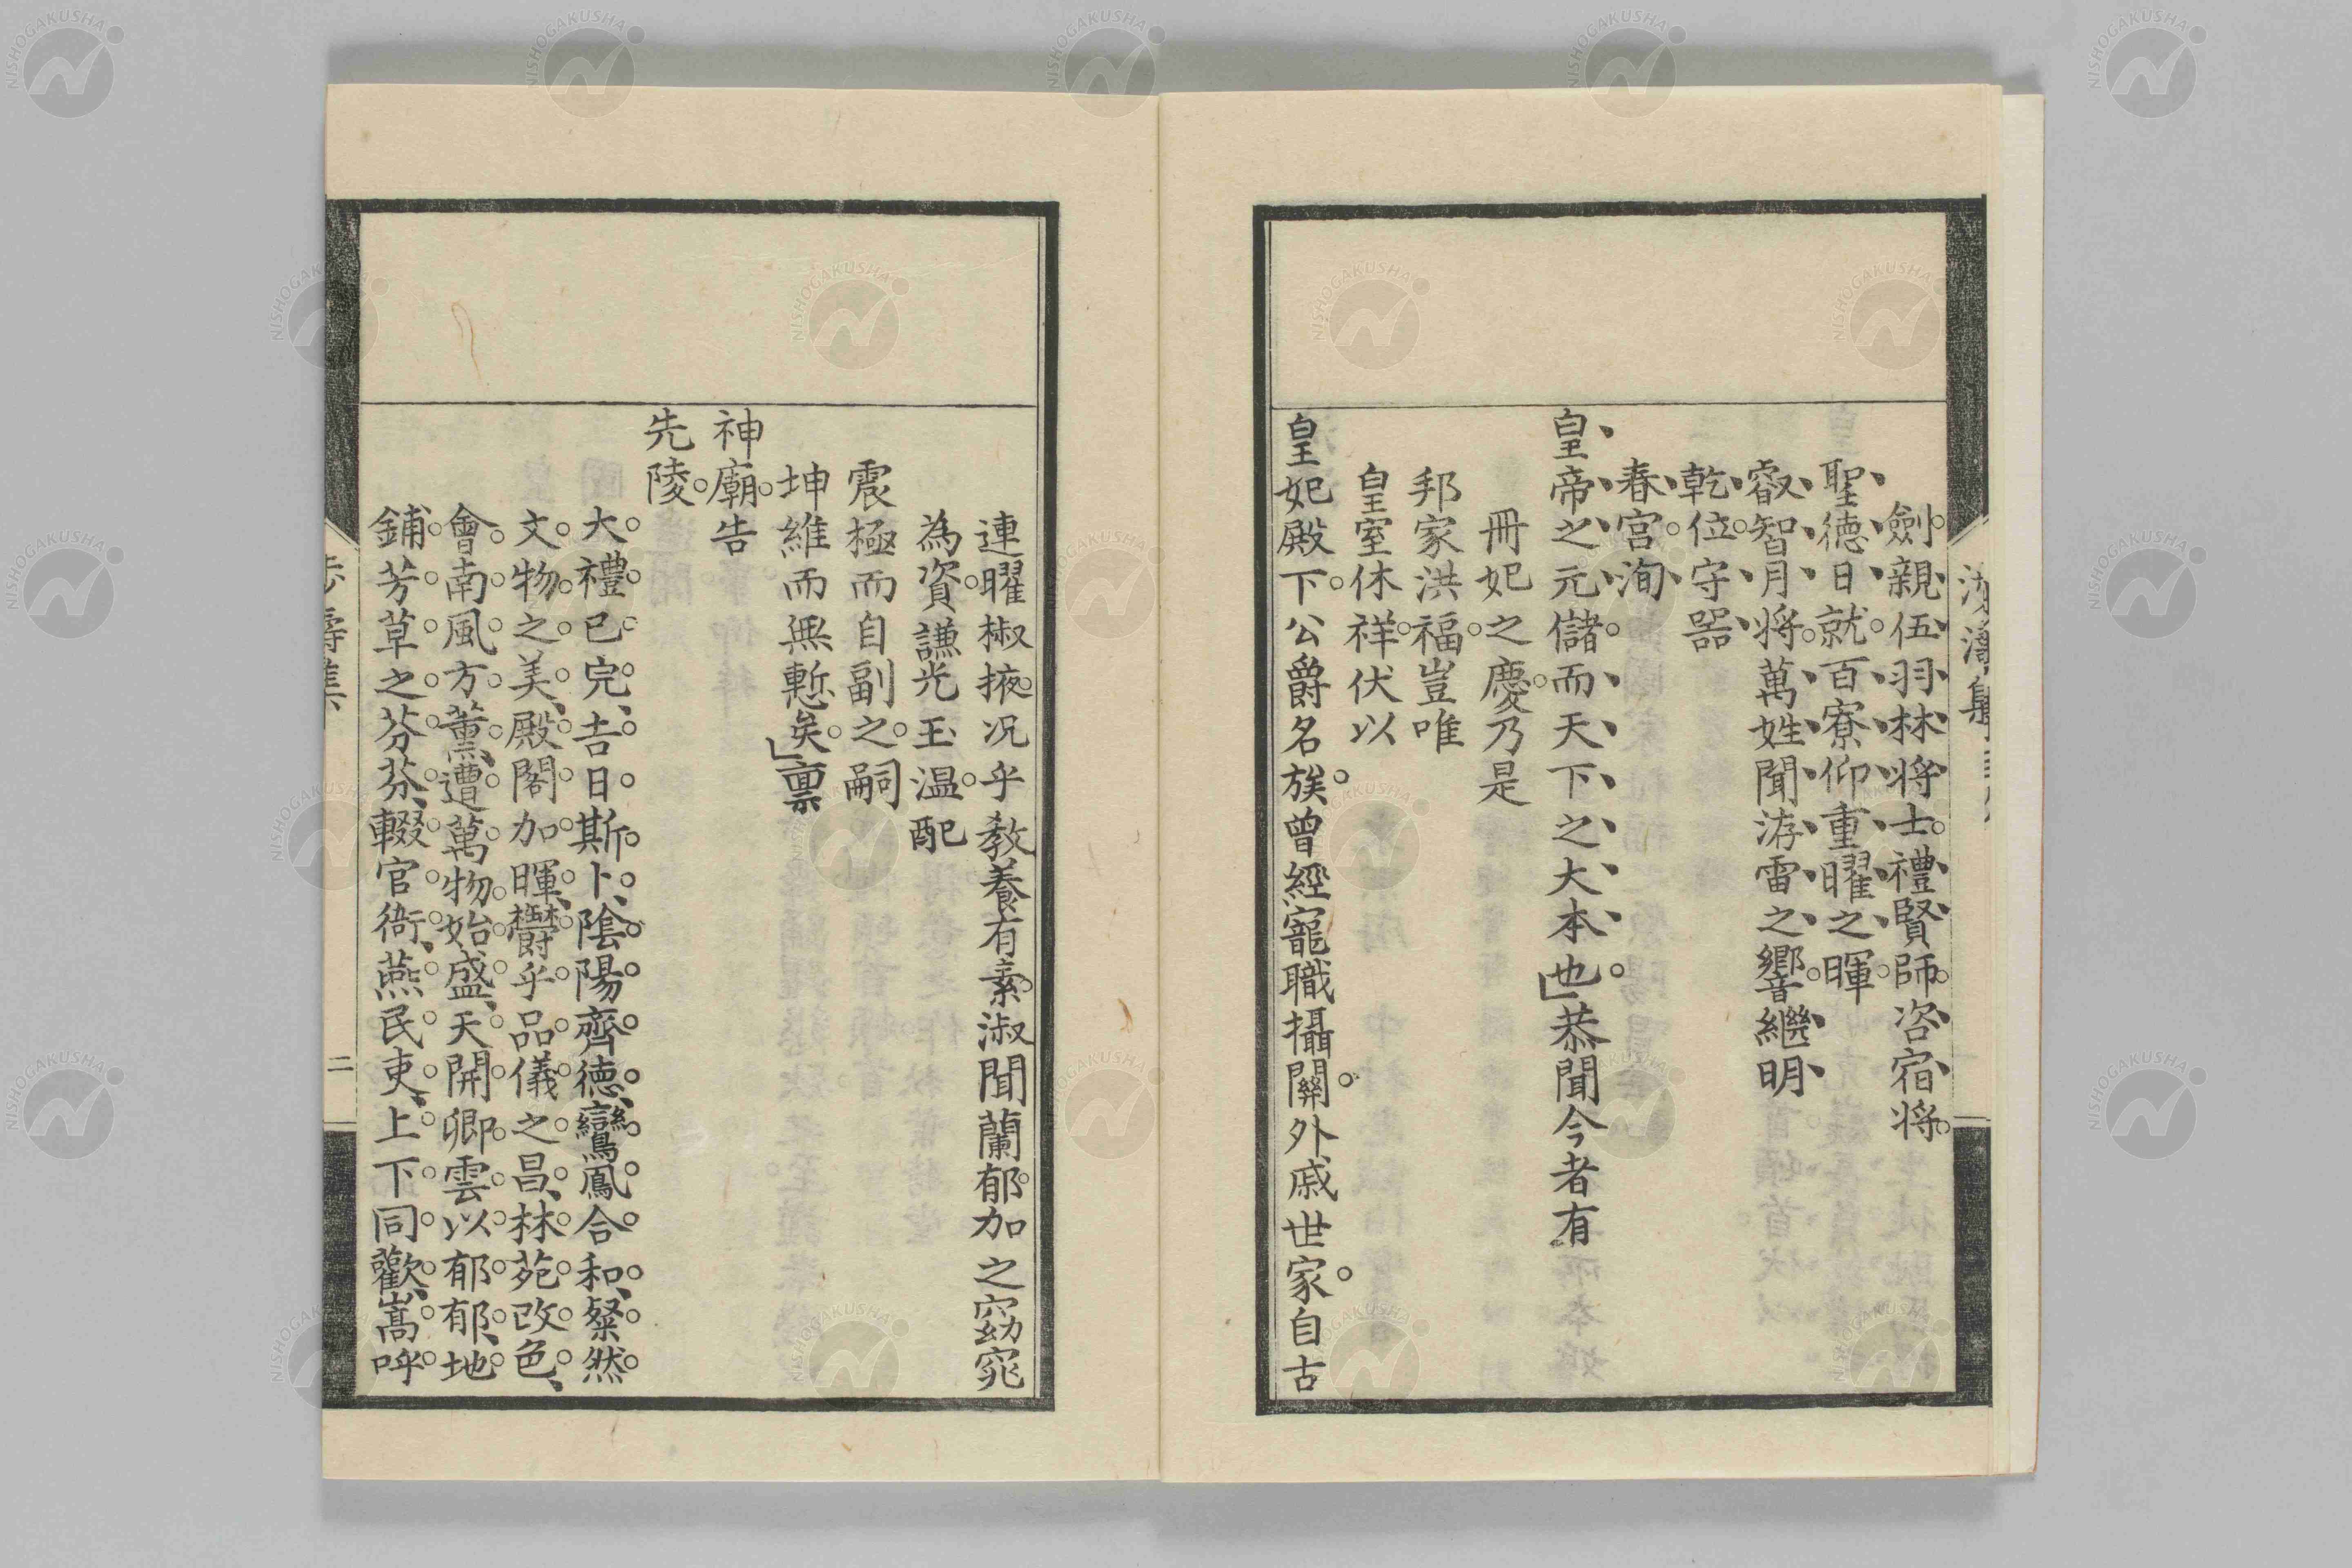 劍親伍羽林将士禮賢師咨宿将
聖徳日就百寮仰重曜之暉
叡智月将萬姓聞洊雷之響繼明
乾位守噐
春宮洵
皇帝之元儲而天下之大本也恭聞今者有
冊妃之慶乃是
邦家洪福豈唯
皇室休祥伏以
皇妃殿下公爵名族曾經寵職攝關外戚世家自古
連曜椒掖况乎教養有素淑聞蘭郁加之窈窕
為資謙光玉温配
震極而自副之嗣
坤維而無慙矣禀
神廟告
先陵
大禮已完吉日斯卜陰陽齊徳鸞鳳合和粲然
文物之美殿閣加暉欝乎品儀之昌林苑改色
會南風方薫遭萬物始盛天開卿雲以郁郁地
鋪芳草之芬芬輟官衙燕民吏上下同歡嵩呼
二
NISHOGAKUSHA